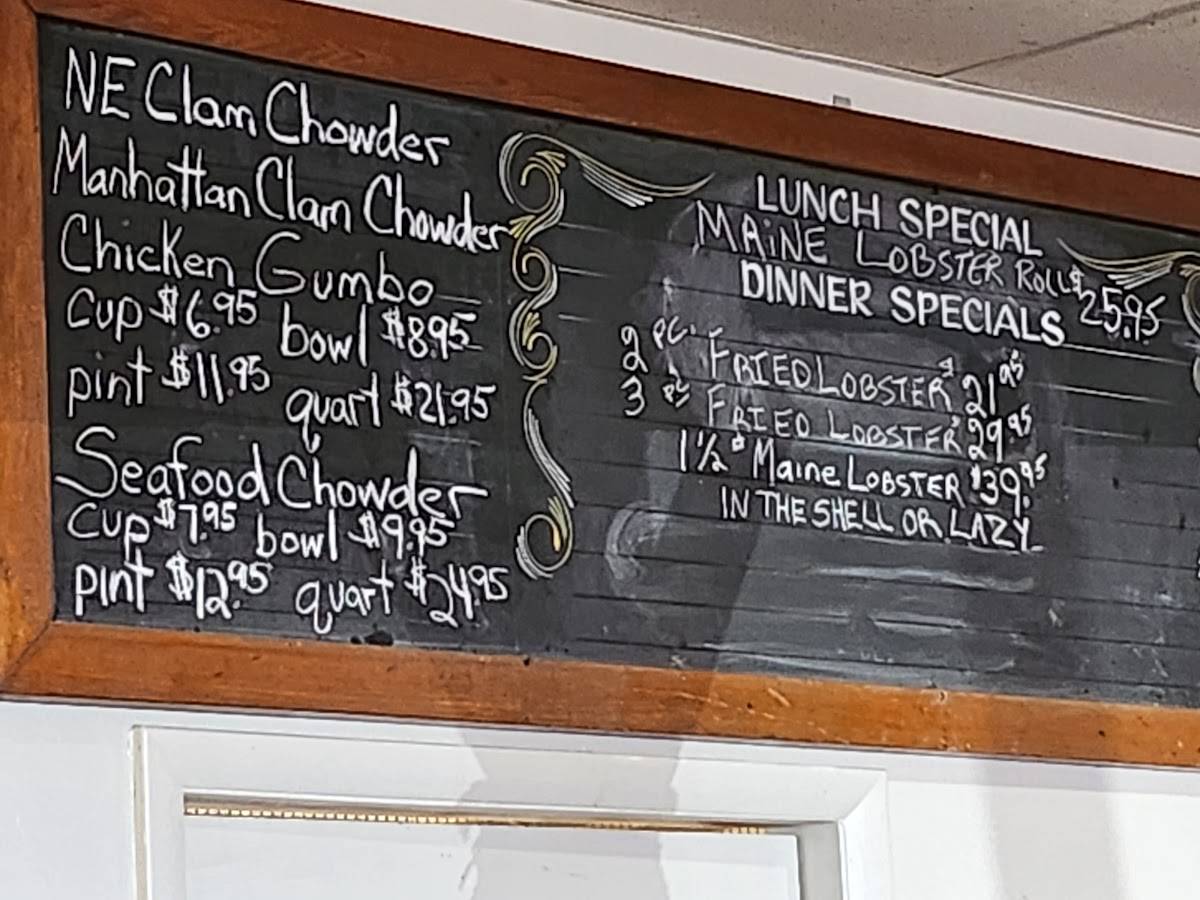 NE Clam Chowder
Manhattan Clam Chowder
Chicken Gumbo
Cup $6.95 bowl $8.95
pint $11.95 quart $21.95
Seafood Chowder
Cup $7.95 bowl $9.95
pint $12.95 quart $24.95
LUNCH SPECIAL
MAINE LOBSTER ROLL $25.95
DINNER SPECIALS
2 PC. FRIED LOBSTER $21.95
3 PC FRIED LOBSTER $29.95
1½ # Maine LOBSTER $39.95
IN THE SHELL OR LAZY